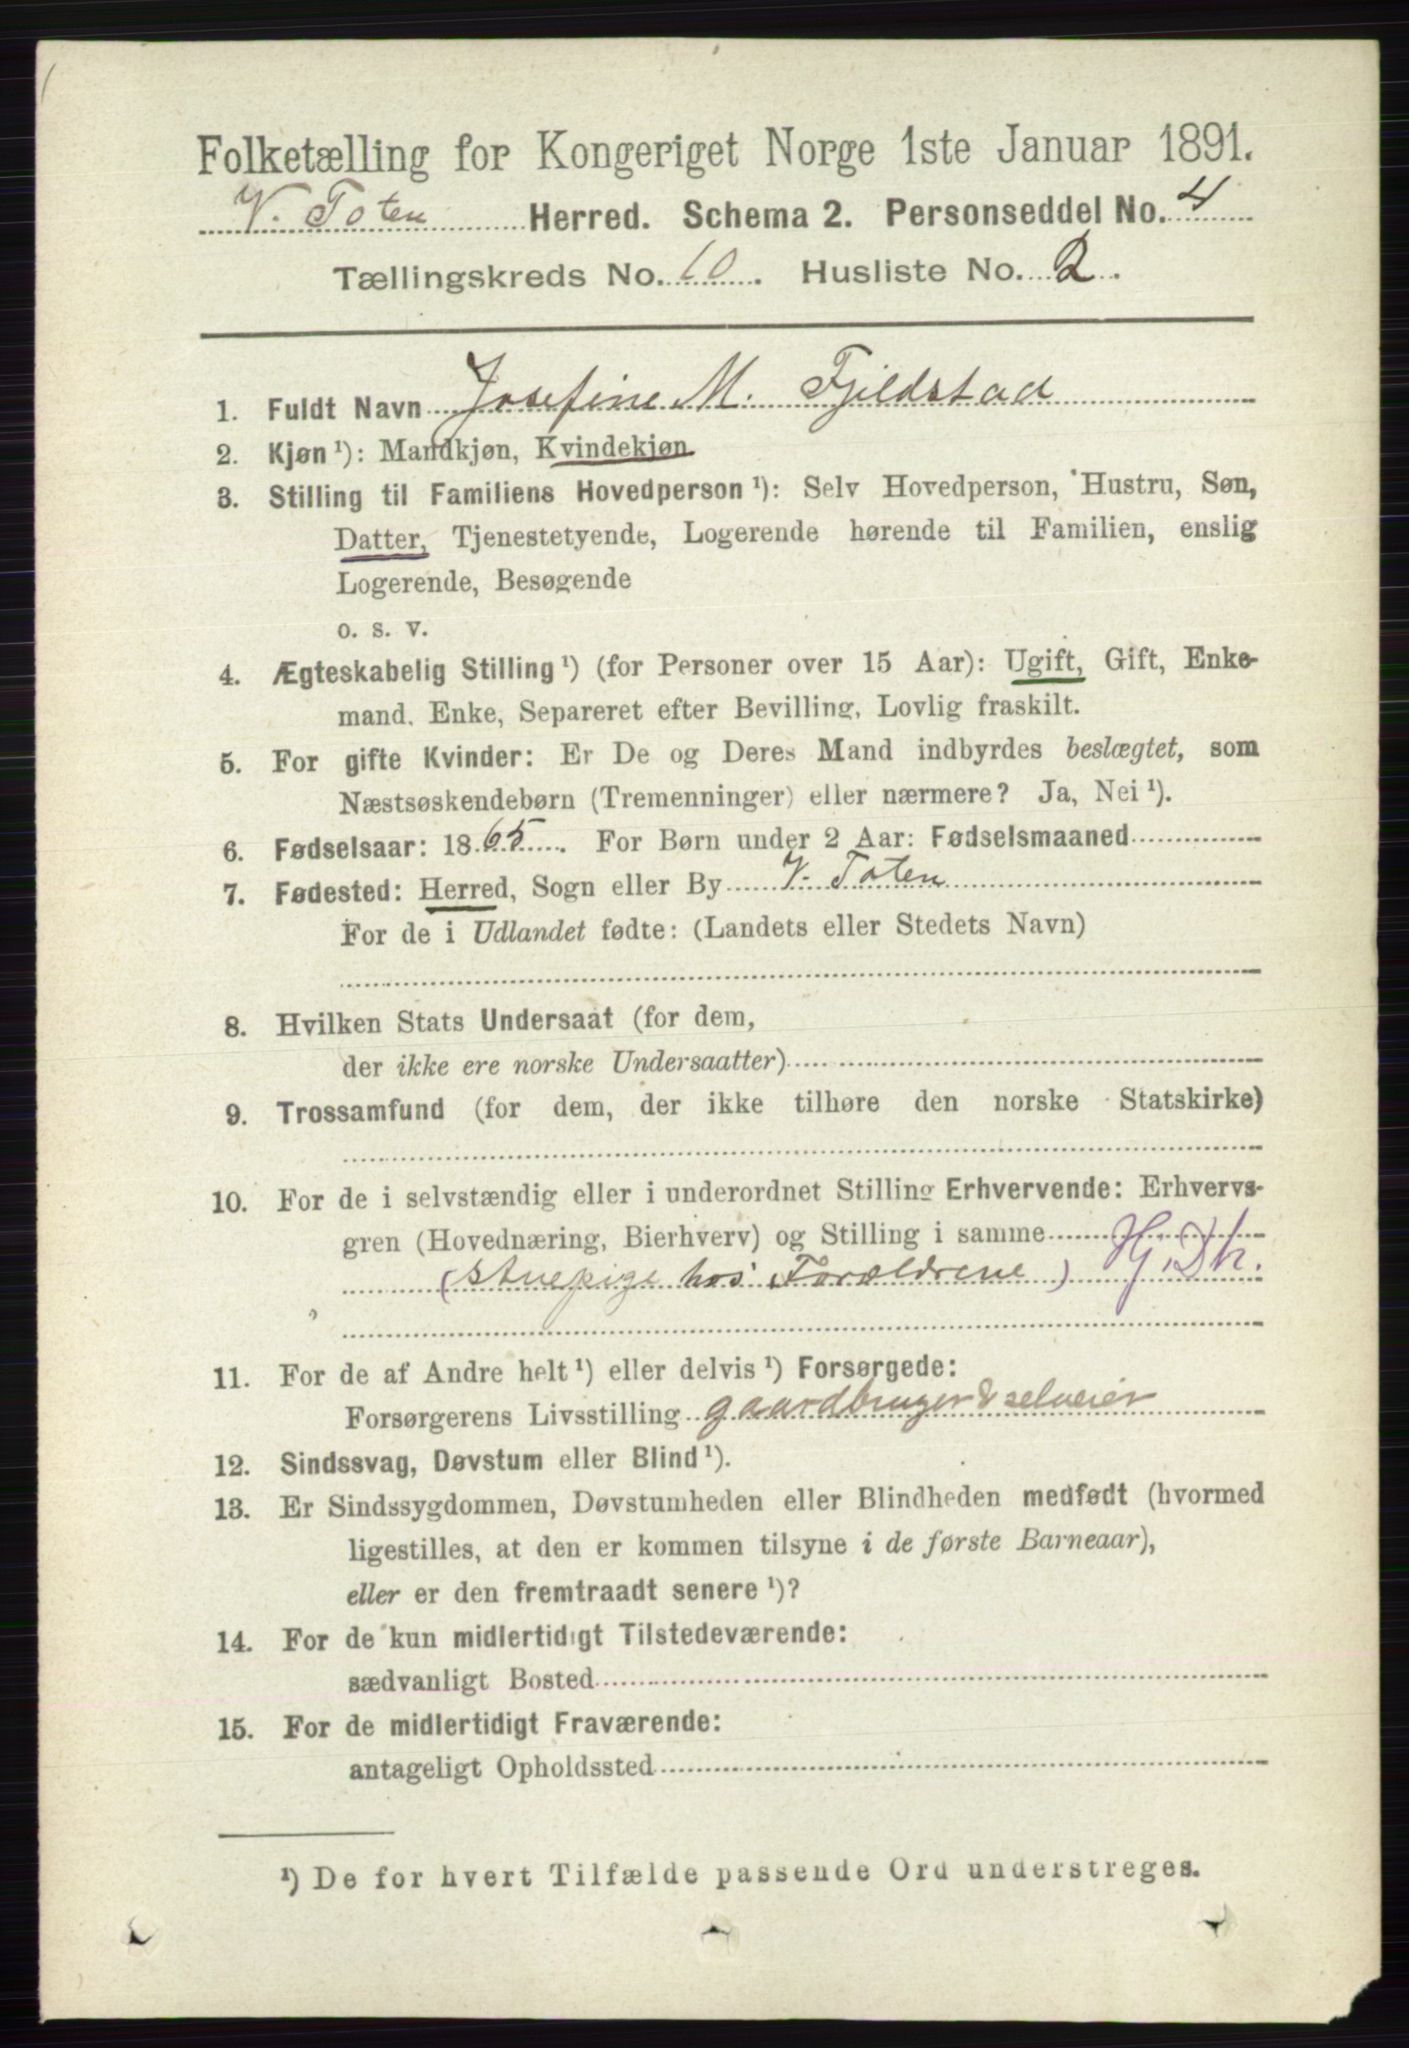 Folketælling for Kongeriget Norge 1ste Januar 1891.
V. Toten Herred. Schema 2. Personseddel No. 4
Tællingskreds No. 10. Husliste No. 2.
1. Fuldt Navn Josefine M. Fjeldstad
2. Kjøn ¹): Mandkjøn, Kvindekjøn
3. Stilling til Familiens Hovedperson ¹): Selv Hovedperson, Hustru, Søn,
Datter, Tjenestetyende, Logerende hørende til Familien, enslig
Logerende, Besøgende
o. s. v.
4. Ægteskabelig Stilling ¹) (for Personer over 15 Aar): Ugift, Gift, Enke-
mand, Enke, Separeret efter Bevilling, Lovlig fraskilt.
5. For gifte Kvinder: Er De og Deres Mand indbyrdes beslægtet, som
Næstsøskendebørn (Tremenninger) eller nærmere? Ja, Nei ¹).
6. Fødselsaar: 1865. For Børn under 2 Aar: Fødselsmaaned
7. Fødested: Herred, Sogn eller By V. Toten
For de i Udlandet fødte: (Landets eller Stedets Navn)
8. Hvilken Stats Undersaat (for dem,
der ikke ere norske Undersaatter)
9. Trossamfund (for dem, der ikke tilhøre den norske Statskirke)
10. For de i selvstændig eller i underordnet Stilling Erhvervende: Erhvervs-
gren (Hovednæring, Bierhverv) og Stilling i samme
(stuepige hos Forældrene) Hj. Dtr.
11. For de af Andre helt ¹) eller delvis ¹) Forsørgede:
Forsørgerens Livsstilling gaardbruger & selveier
12. Sindssvag, Døvstum eller Blind ¹).
13. Er Sindssygdommen, Døvstumheden eller Blindheden medfødt (hvormed
ligestilles, at den er kommen tilsyne i de første Barneaar),
eller er den fremtraadt senere ¹)?
14. For de kun midlertidigt Tilstedeværende:
sædvanligt Bosted
15. For de midlertidigt Fraværende:
antageligt Opholdssted
¹) De for hvert Tilfælde passende Ord understreges.